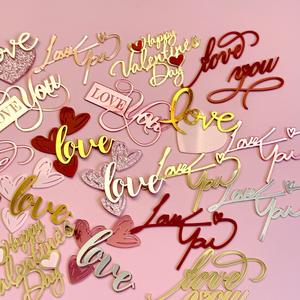 love
Love
You
Happy
Valentine's
Day
love
you
LOVE
You
LOVE
You
love
love
Love
You
love
Love
You
Love
You
love
Love
You
Happy
Valentine's
Day
love
love
you